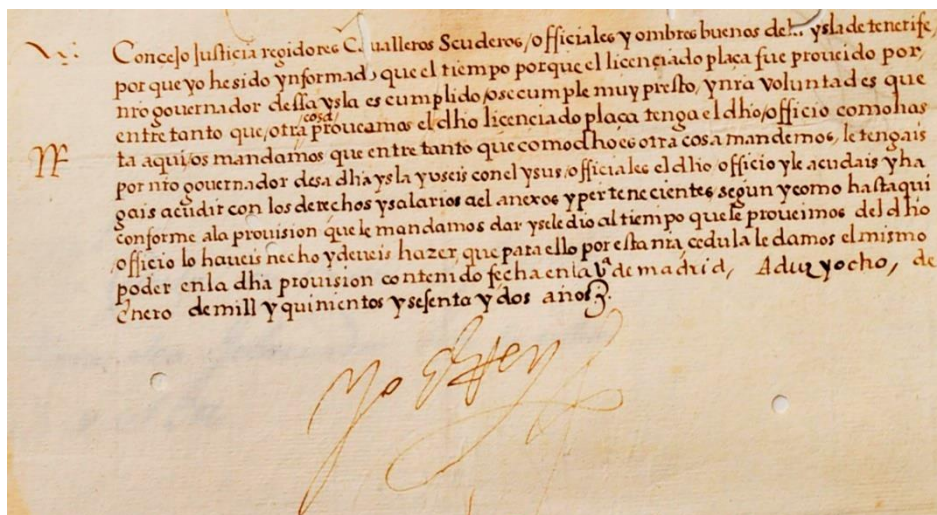 Concejo Justicia regidores Cavalleros Scuderos/officiales y ombres buenos dela ysla de tenerife,
por que yo he sido ynformado que el tiempo porque el licenciado plaça fue proueido por,
nro governador dessa ysla es cumplido/o se cumple muy presto, y nra voluntad es que
entre tanto que/otra cosa proueamos el dho licenciado plaça tenga el dho/officio como has
ta aqui/os mandamos que entre tanto que como dho es otra cosa mandemos, le tengais
por nro governador desa dha ysla y useis con el y sus/officiales el dho officio y le acudais y ha
gais acudir con los derechos y salarios ael anexos y pertenecientes segun y como hasta qui
conforme ala prouision que le mandamos dar y se le dio al tiempo que le proueimos del dho
/officio lo haueis hecho y deueis hazer, que para ello por esta nra cedula le damos el mismo
poder en la dha prouision contenido fecha en la va de madrid, A diez y ocho, de
Enero de mill y quinientos y sesenta y dos años.
Yo el Rey